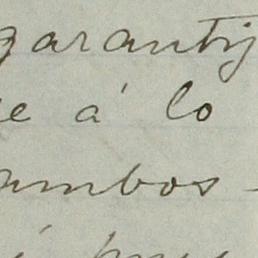 garantij
e á lo
ambos -